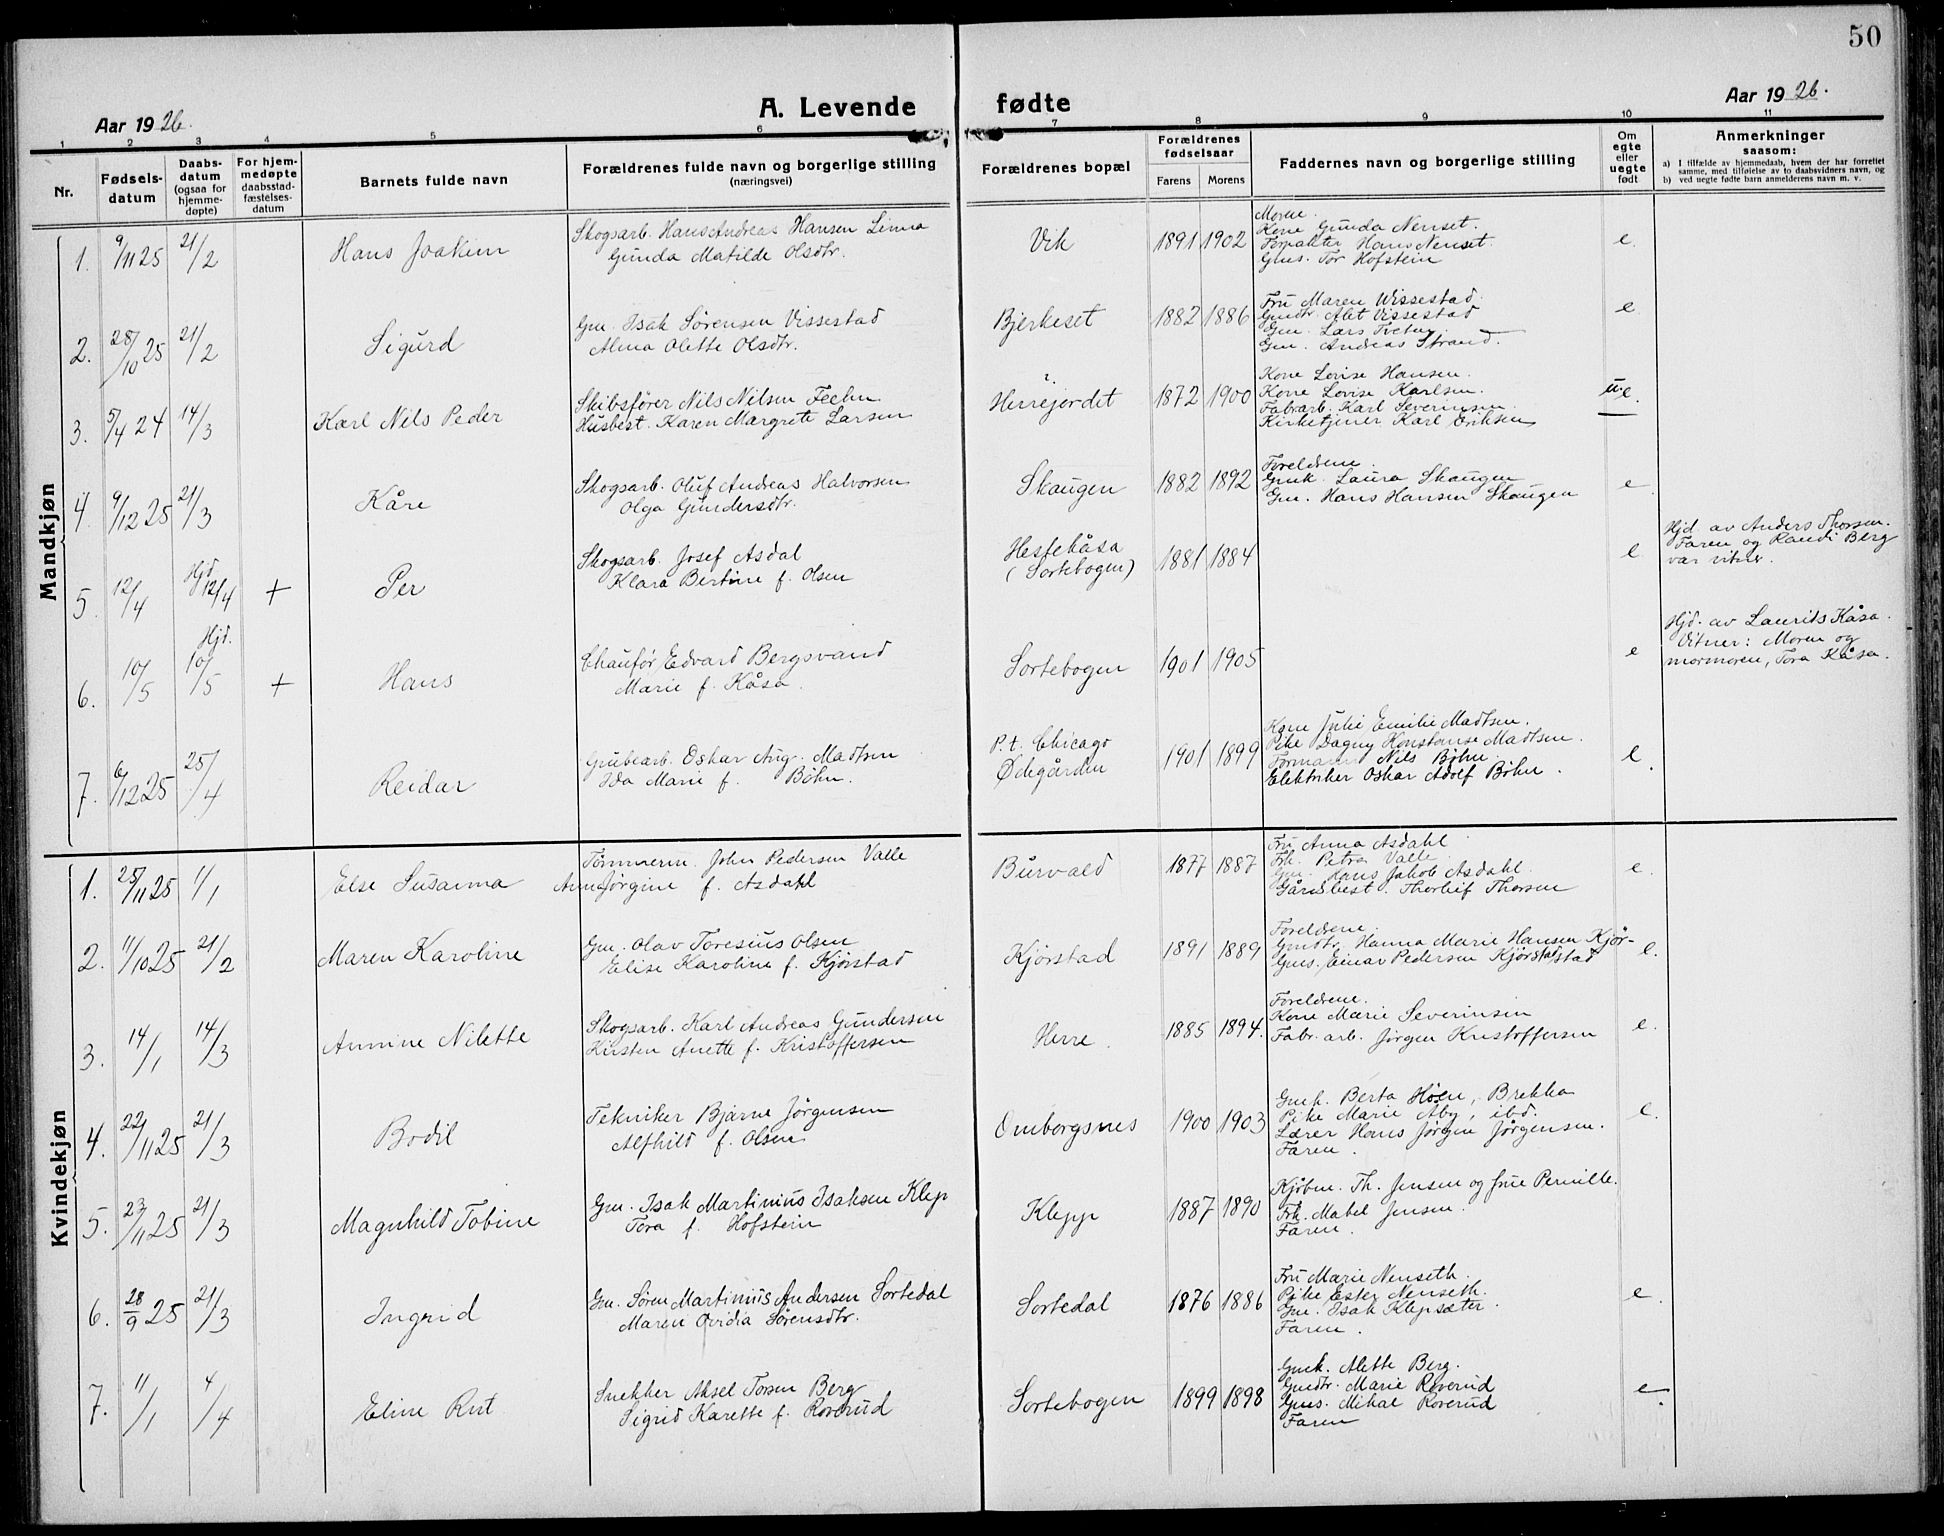 50
A. Levende fødte
Aar 1926.
Aar 1926.
1 2 3 4 5 6 7 8 9 10 11
Nr.
Fødsels-
datum
Daabs-
datum
(ogsaa for
hjemme-
døpte)
For hjem-
medøpte
daabsstad-
fæstelses-
datum
Barnets fulde navn
Forældrenes fulde navn og borgerlige stilling
(næringsvei)
Forældrenes bopæl
Forældrenes
fødselsaar
Farens Morens
Faddernes navn og borgerlige stilling
Om
egte
eller
uegte
født
Anmerkninger
saasom:
a) I tilfælde av hjemmedaab, hvem der har forrettet
samme, med tilføielse av to daabsvidners navn, og
b) ved uegte fødte barn anmelderens navn m. v.
Mandkjøn
1. 9/11 25 21/2 Hans Joakim
Skogsarb. Hans Andreas Hansen Linna
Gunda Matilde Olsdtr.
Vik 1891 1902
Moren.
Kone Gunda Nenset.
Forpakter Hans Nenset.
Gms. Tor Hofstein
e.
2. 28/10 25 21/2 Sigurd
Gm. Isak Sørensen Vissestad
Alma Olette Olsdtr.
Bjerkeset 1882 1886
Fru Maren Wissestad.
Gmdtr. Alet Vissestad
Gm. Lars Tveten.
Gm. Andreas Strand.
e.
3. 5/4 24 14/3 Karl Nils Peder
Skibsfører Nils Nilsen Feehn.
Husbest. Karen Margrete Larsen
Herrejordet 1872 1900
Kone Lovise Hansen.
Kone Lovise Karlsen.
Fabrarb. Karl Severinsen.
Kirketjener Karl Eriksen
u.e.
4. 9/12 25 21/3 Kåre
Skogsarb. Oluf Andreas Halvorsen
Olga Gundersdtr.
Skaugen 1882 1892
Foreldrene.
Gmk. Laura Skaugen
Gm. Hans Hansen Skaugen
e.
5. 12/4 Hjd. 12/4 + Per
Skogsarb. Josef Asdal
Klara Bertine f. Olsen
Hestehåsa
(Sortebogen) 1881 1884
e
Hjd. av Anders Thorsen.
Faren og Randi Berg
var vitner.
6. 10/5 Hjd. 10/5 + Hans
Chaufør Edvard Bergsvand
Marie f. Kåsa.
Sortebogen 1901 1905
e
Hjd. av Laurits Kåsa.
Vitner: Moren og
mormoren, Tora Kåsa.
7. 6/12 25 25/4 Reidar
Grubearb. Oskar Aug. Madtsen
Ida Marie f. Bøhn.
P.t. Chicago
Ødegården 1901 1899
Kone Julie Emilie Madtsen.
Pike Dagny Konstanse Madtsen.
Formann Nils Bøhn.
Elektriker Oskar Adolf Bøhn.
e.
Kvindekjøn
1. 25/11 25 1/1 Else Susanna
Tømmerm. John Pedersen Valle
Anna Jørgine f. Asdahl
Burvald 1877 1887
Fru Anna Asdahl
Frk. Petra Valle
Gm. Hans Jakob Asdahl.
Gårdsbest. Thorleif Thorsen
e.
2. 11/10 25 21/2 Maren Karoline
Gm. Olav Toresius Olsen
Elise Karoline f. Kjørstad
Kjørstad 1891 1889
Foreldrene.
Gmdtr. Hanna Marie Hansen Kjør-
Gms. Einar Pedersen Kjørstad stad
e.
3. 14/1 14/3 Annine Nilette
Skogsarb. Karl Andreas Gundersen
Kirsten Anette f. Kristoffersen
Herre. 1885 1894.
Foreldrene.
Kone Marie Severinsen
Fabr. arb. Jørgen Kristoffersen
e.
4. 22/11 25 21/3 Bodil
Tekniker Bjarne Jørgensen
Alfhild f. Olsen
Omborgsnes 1900 1903
Gmk. Berta Høen, Brekka
Pike Marie Aby, ibd.
Lærer Hans Jørgen Jørgensen.
Faren.
e.
5. 23/11 25 21/3 Magnhild Tobine
Gm. Isak Martinius Isaksen Klep
Tora f. Hofstein
Klepp 1887 1890
Kjøbm. Th. Jensen og frue Pernille.
Frk. Mabel Jensen.
Faren.
6. 28/9 25 21/3 Ingrid
Gm. Søren Martinius Andersen Sortedal
Maren Ovidia Sørensdtr.
Sortedal 1876 1886
Fru Marie Nenseth.
Pike Ester Nenseth.
Gm. Isak Klepsæter.
Faren.
e.
7. 11/1 4/4 Eline Rut
Snekker Aksel Torsen Berg
Sigrid Karette f. Roverud
Sortebogen 1899 1898
Gmk. Alette Berg.
Gmdtr. Marie Roverud
Gms. Mikal Roverud
Faren
e.